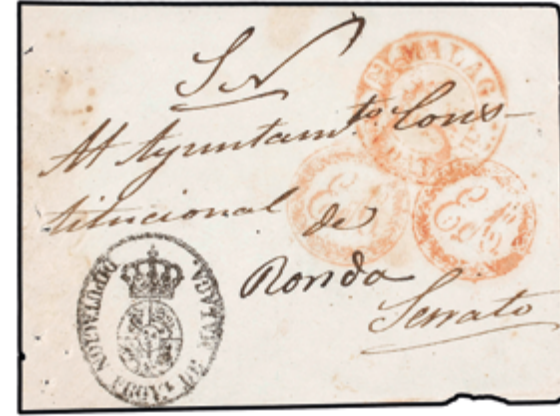 S N
Al Ayuntamto Cons-
titucional de
Ronda
Serrato
MALAGA
DIPUTACION PROVAL DE MALAGA.